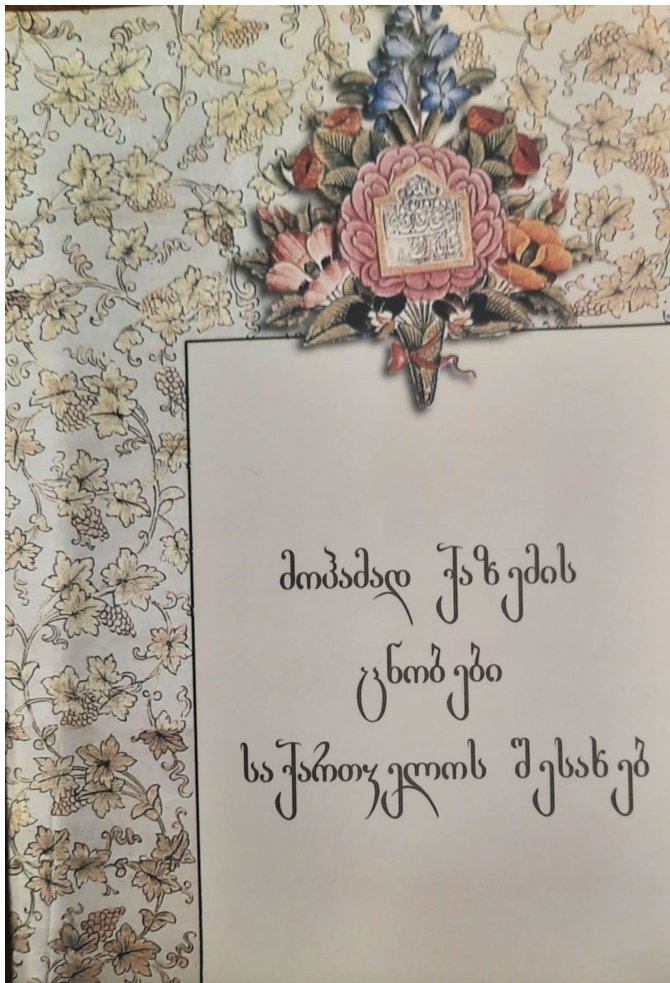 მოჰამად ქაზემის
ცნობები
საქართველოს შესახებ